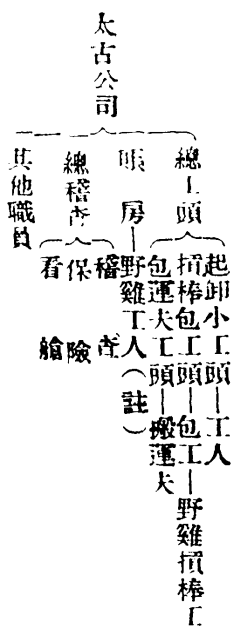 太古公司
總工頭
起卸小工頭—工人
損棒包工頭—包工—野雞損棒工
包運夫工頭—搬運夫
賬房—野雞工人(註)
總稽查
稽查
保險
看艙
其他職員